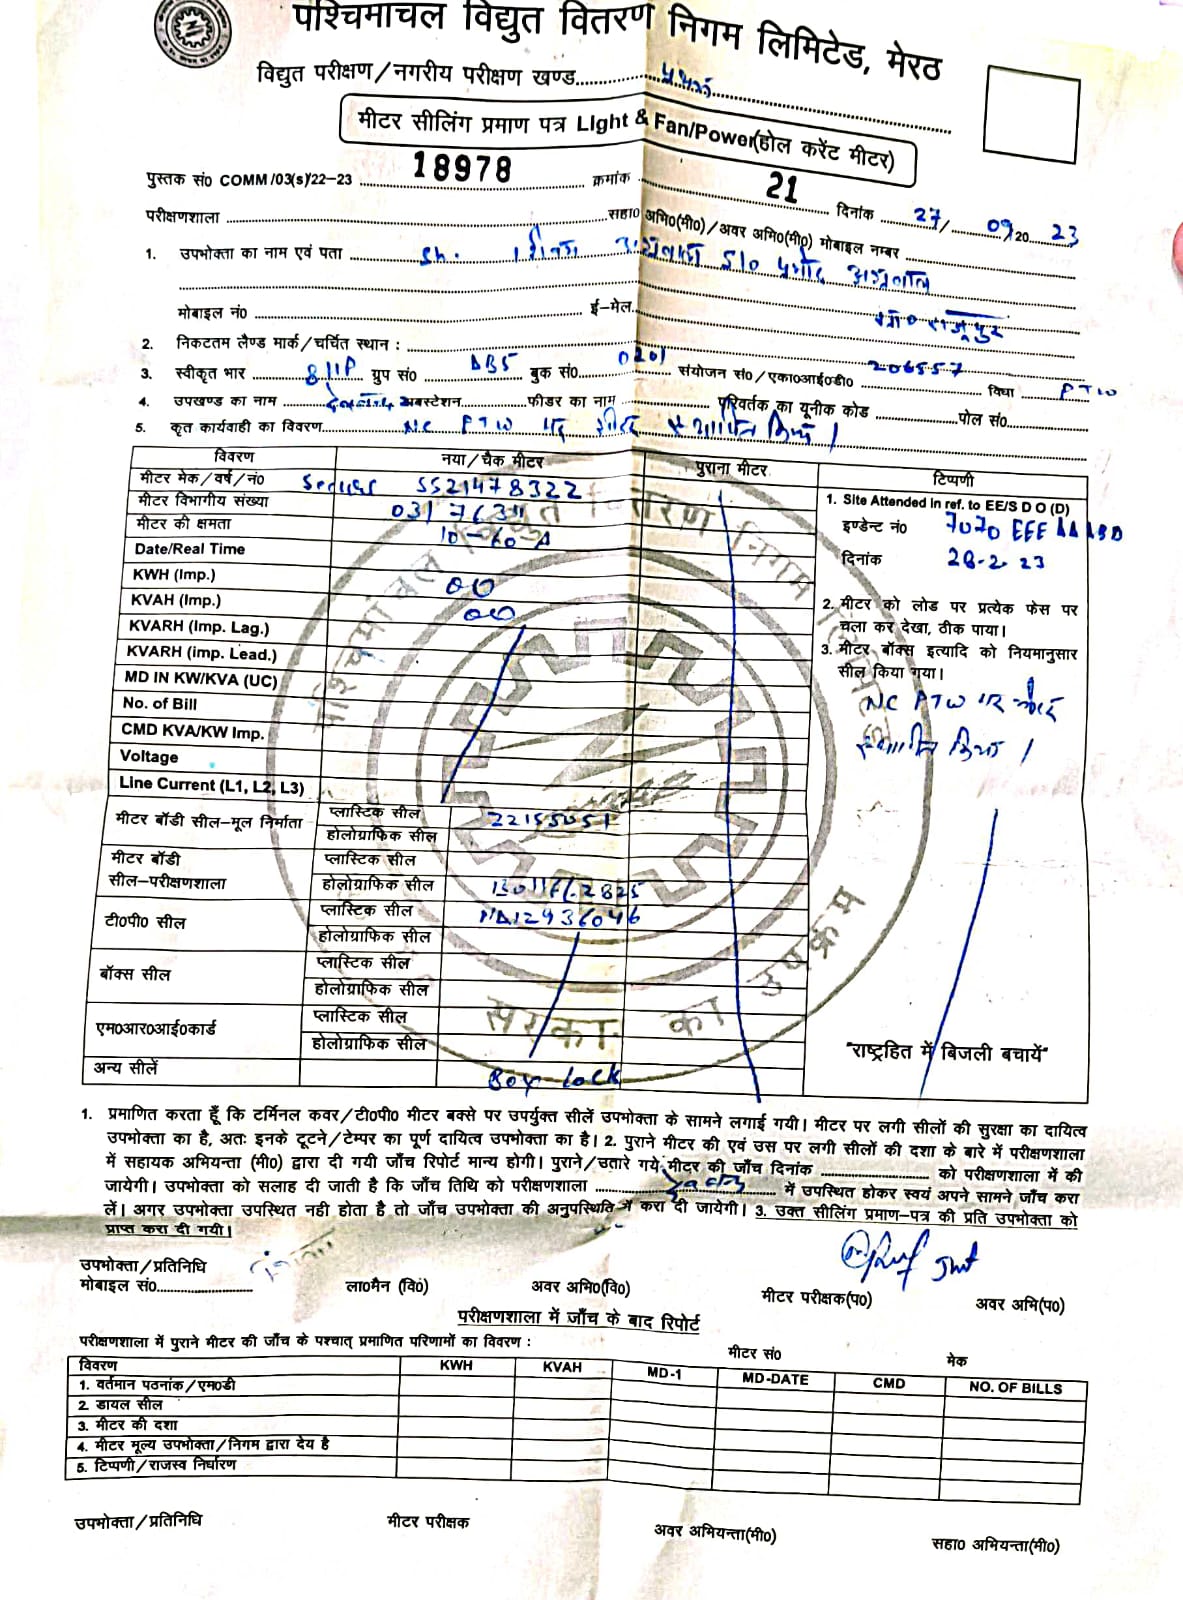 पश्चिमाचल विद्युत वितरण निगम लिमिटेड, मेरठ
विद्युत परीक्षण/नगरीय परीक्षण खण्ड
मीटर सीलिंग प्रमाण पत्र Light & Fan/Power(होल करेंट मीटर)
पुस्तक सं0 COMM/03(s)/22-23 18978 क्रमांक 21 दिनांक 27/09/2023
परीक्षणशाला सहा0 अभि0(मी0)/अवर अभि0(मी0) मोबाइल नम्बर
1. उपभोक्ता का नाम एवं पता Sh. S/o प्रमोद अग्रवाल
मोबाइल नं0 ई-मेल
2. निकटतम लैण्ड मार्क/चर्चित स्थान :
3. स्वीकृत भार 8HP ग्रुप सं0 AB5 बुक सं0 0201 संयोजन सं0/एका0आई0डी0 206557 विधा PTW
4. उपखण्ड का नाम सबस्टेशन फीडर का नाम परिवर्तक का यूनीक कोड पोल सं0
5. कृत कार्यवाही का विवरण NC PTW पर मीटर स्थापित किया।
विवरण नया/चैक मीटर पुराना मीटर टिप्पणी
मीटर मेक/वर्ष/नं0 Secure SS21478322
मीटर विभागीय संख्या
मीटर की क्षमता 10-60 A
Date/Real Time
KWH (Imp.) 00
KVAH (Imp.) 00
KVARH (Imp. Lag.)
KVARH (imp. Lead.)
MD IN KW/KVA (UC)
No. of Bill
CMD KVA/KW Imp.
Voltage
Line Current (L1, L2, L3)
1. Site Attended in ref. to EE/S D O (D)
इण्डेन्ट नं0 7070
दिनांक 28-2-23
2. मीटर को लोड पर प्रत्येक फेस पर
चला कर देखा, ठीक पाया।
3. मीटर बॉक्स इत्यादि को नियमानुसार
सील किया गया।
NC PTW पर मीटर
स्थापित किया।
मीटर बॉडी सील-मूल निर्माता प्लास्टिक सील 22155051
होलोग्राफिक सील
मीटर बॉडी प्लास्टिक सील
सील-परीक्षणशाला होलोग्राफिक सील
टी0पी0 सील प्लास्टिक सील
होलोग्राफिक सील
बॉक्स सील प्लास्टिक सील
होलोग्राफिक सील
एम0आर0आई0कार्ड प्लास्टिक सील
होलोग्राफिक सील
अन्य सीलें Box-Lock
"राष्ट्रहित में बिजली बचायें"
1. प्रमाणित करता हूँ कि टर्मिनल कवर/टी0पी0 मीटर बक्से पर उपर्युक्त सीलें उपभोक्ता के सामने लगाई गयी। मीटर पर लगी सीलों की सुरक्षा का दायित्व
उपभोक्ता का है, अतः इनके टूटने/टेम्पर का पूर्ण दायित्व उपभोक्ता का है। 2. पुराने मीटर की एवं उस पर लगी सीलों की दशा के बारे में परीक्षणशाला
में सहायक अभियन्ता (मी0) द्वारा दी गयी जाँच रिपोर्ट मान्य होगी। पुराने/उतारे गये मीटर की जाँच दिनांक को परीक्षणशाला में की
जायेगी। उपभोक्ता को सलाह दी जाती है कि जाँच तिथि को परीक्षणशाला में उपस्थित होकर स्वयं अपने सामने जाँच करा
लें। अगर उपभोक्ता उपस्थित नही होता है तो जाँच उपभोक्ता की अनुपस्थिति में करा दी जायेगी। 3. उक्त सीलिंग प्रमाण-पत्र की प्रति उपभोक्ता को
प्राप्त करा दी गयी।
उपभोक्ता/प्रतिनिधि
मोबाइल सं0 ला0मैन (वि0) अवर अभि0(वि0) मीटर परीक्षक(प0) अवर अभि(प0)
परीक्षणशाला में जाँच के बाद रिपोर्ट
परीक्षणशाला में पुराने मीटर की जाँच के पश्चात् प्रमाणित परिणामों का विवरण : मीटर सं0 मेक
विवरण KWH KVAH MD-1 MD-DATE CMD NO. OF BILLS
1. वर्तमान पठनांक/एम0डी
2. डायल सील
3. मीटर की दशा
4. मीटर मूल्य उपभोक्ता/निगम द्वारा देय है
5. टिप्पणी/राजस्व निर्धारण
उपभोक्ता/प्रतिनिधि मीटर परीक्षक अवर अभियन्ता(मी0) सहा0 अभियन्ता(मी0)